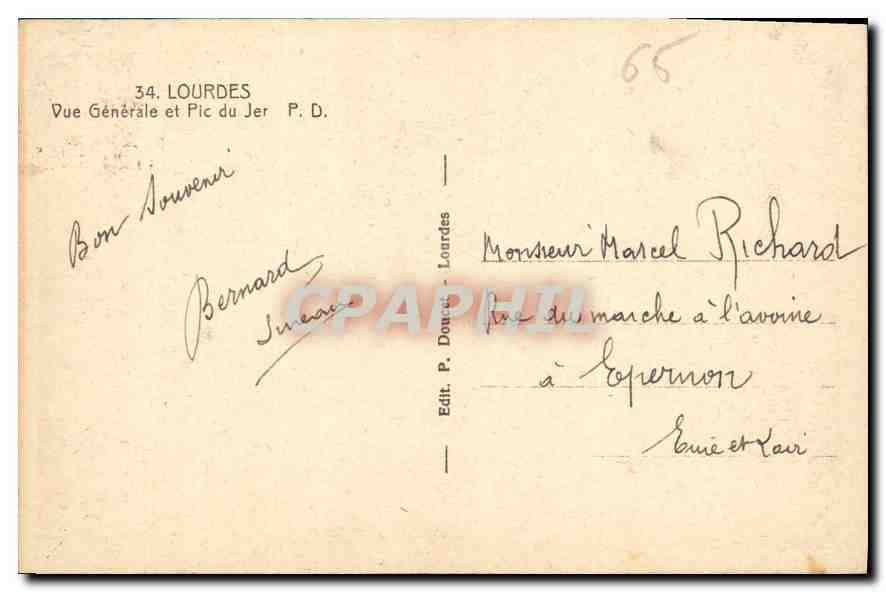 65
34. LOURDES
Vue Générale et Pic du Jer P. D.
Bon Souvenir
Bernard
Edit. P. Doucet - Lourdes
Monsieur Marcel Richard
Rue du marche à l'avoine
à Epernon
Eure et Loir
CPAPHIL